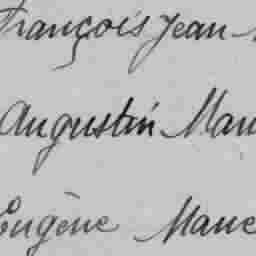 François Jean
Augustin Mau
Eugène Mau